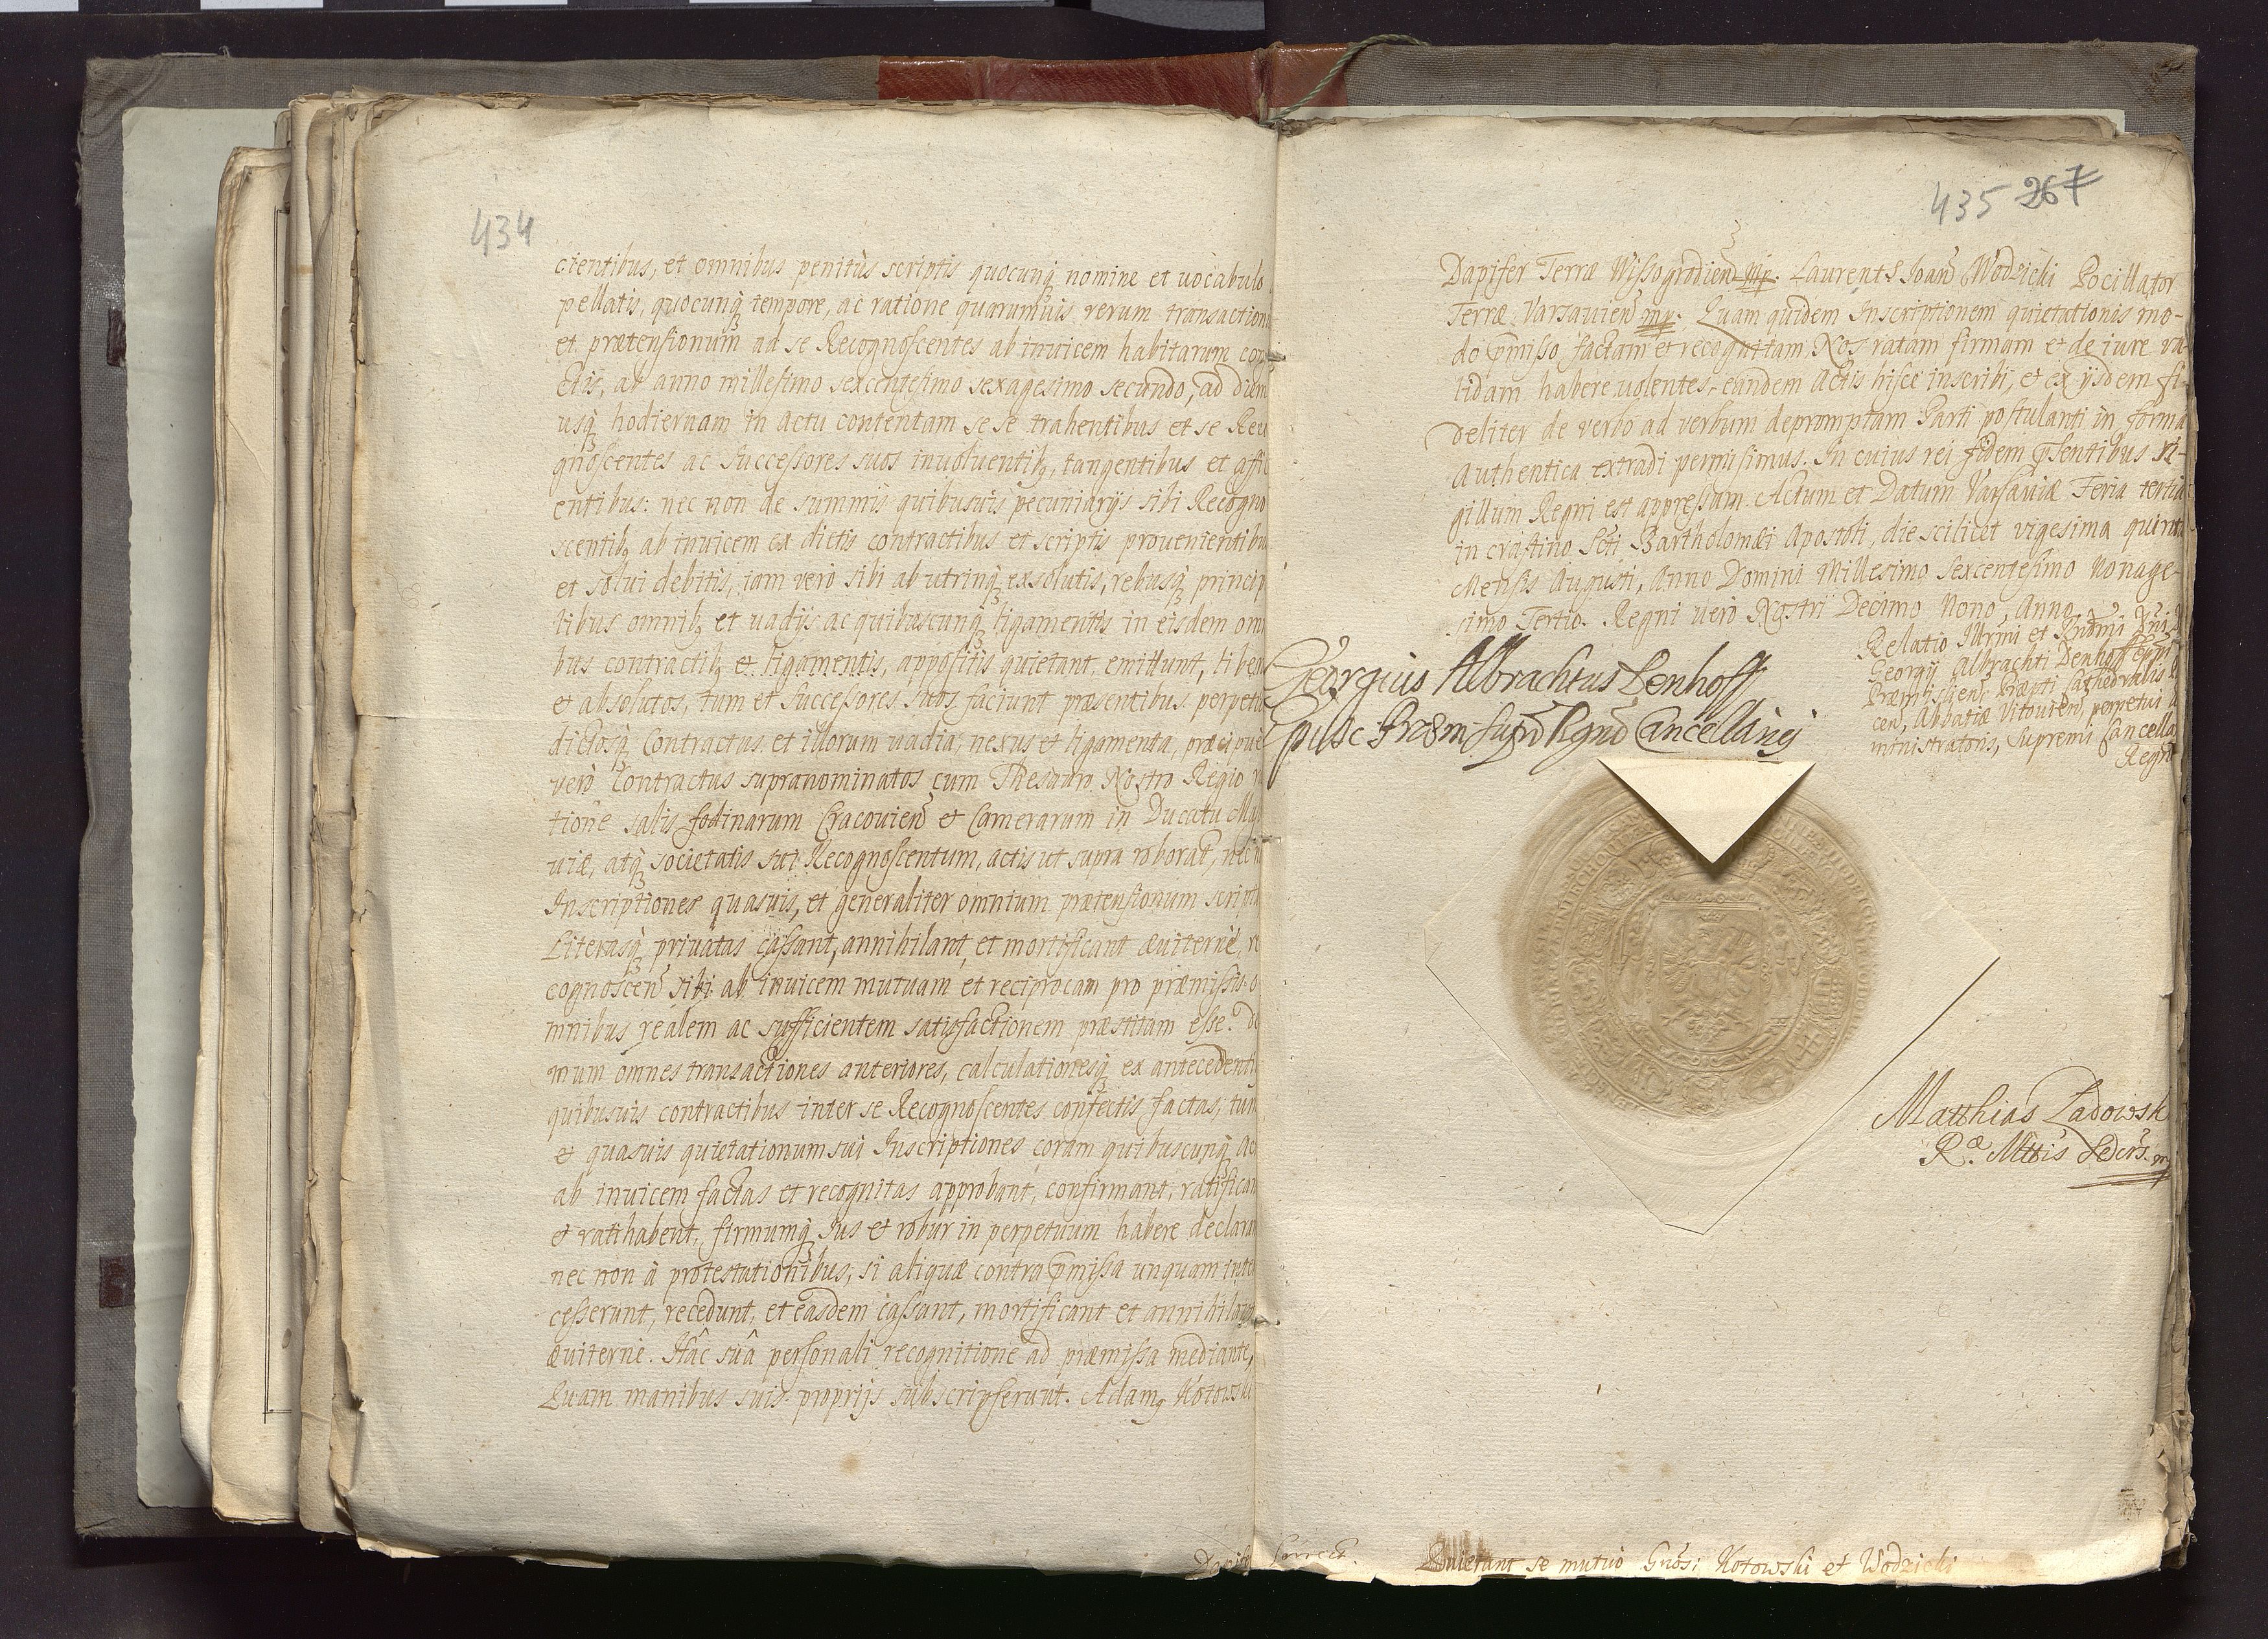 434
cientibus, et omnibus penitùs scriptis quocunq; nomine et uocabulo
pellatis, quocunq; tempore, ac ratione quarumuis rerum transaction
et prætensionum ad se Recognoscentes ab inuicem habitarum con
ctis, ab anno millesimo sexcentesimo sexagesimo secundo, ad diem
usq; hodiernam in actu contentam sese trahentibus et se Reco
gnoscentes ac Successores suos inuoluentib; tangentibus et affi
entibus: nec non de summis quibusuis pecuniarijs sibi Recogno
scentib; ab inuicem ex dictis contractibus et scriptis prouenientibu
et solui debitis, iam verò sibi ab utrinq; exsolutis, rebusq; princip
libus omnib; et uadijs ac quibuscunq; ligamentis in eisdem omni
bus contractib; et ligamentis, appositis quietant, emittunt, liberos
et absolutos, tum et Successores suos faciunt præsentibus perpetu
dictosq; Contractus et illorum uadia, nexus et ligamenta, præcipue
verò Contractus supranominatos cum Thesauro Nostro Regio
tione salis fodinarum Cracouien et Camerarum in Ducatu Maso
uiæ, atq; societatis sui Recognoscentum, actis ut supra roborat, nec n
Inscriptiones quasuis, et generaliter omnium prætensionum script
Literasq; priuatas cassant, annihilant, et mortificant æuiternè, re
cognoscen sibi ab inuicem mutuam et reciprocam pro præmissis o
mnibus realem ac sufficientem satisfactionem præstitam esse. de
mum omnes transactiones anteriores, calculationesq; ex antecedenti
quibusuis contractibus inter se Recognoscentes confectis factas, tum
et quasuis quietationum sui Inscriptiones coram quibuscunq; Ac
ab inuicem factas et recognitas approbant, confirmant, ratifican
et ratihabent, firmumq; Ius et robur in perpetuum habere declaran
nec non à protestationibus, si aliquæ contra pmissa unquam inte
cesserunt, recedunt, et easdem cassant, mortificant et annihilant
æuiternè. Hâc suâ personali recognitione ad præmissa mediante,
Quam manibus suis proprijs subscripserunt. Adam; Kotowski
Dapifer
435 267
Dapifer Terræ Wissogrodien mp. Laurent; Ioan Wodzicki Pocillator
Terræ Varsauien mp. Quam quidem Inscriptionem quietationis mo-
do pmisso factam et recognitam, Nos ratam firmam et de iure va-
lidam habere uolentes, eandem Actis hisce inscribi, et ex ijsdem fi-
deliter de verbo ad verbum depromptam Parti postulanti in forma
Authentica extradi permisimus. In cuius rei fidem psentibus Si-
gillum Regni est appressum. Actum et Datum Varsauiæ Feria tertia
in crastino Sti Bartholomæi Apostoli, die scilicet vigesima quinta
Mensis Augusti, Anno Domini Millesimo Sexcentesimo Nonage-
simo Tertio. Regni verò Nostri Decimo Nono, Anno.
Relatio Illrmi et Rndmi Dni
Georgij Albrachti Denhoff Epi
Præmislien, Præpti Cathedralis
cen, Abbatiæ Vitouien perpetui Ad
ministratoris, Supremi Cancella
Regni
Georgius Albrachtus Denhoff
Matthias Ladowsk
Rae Mttis Secrs. mp
Correct.
Quietant se mutuo Gnosi Kotowski et Wodzicki